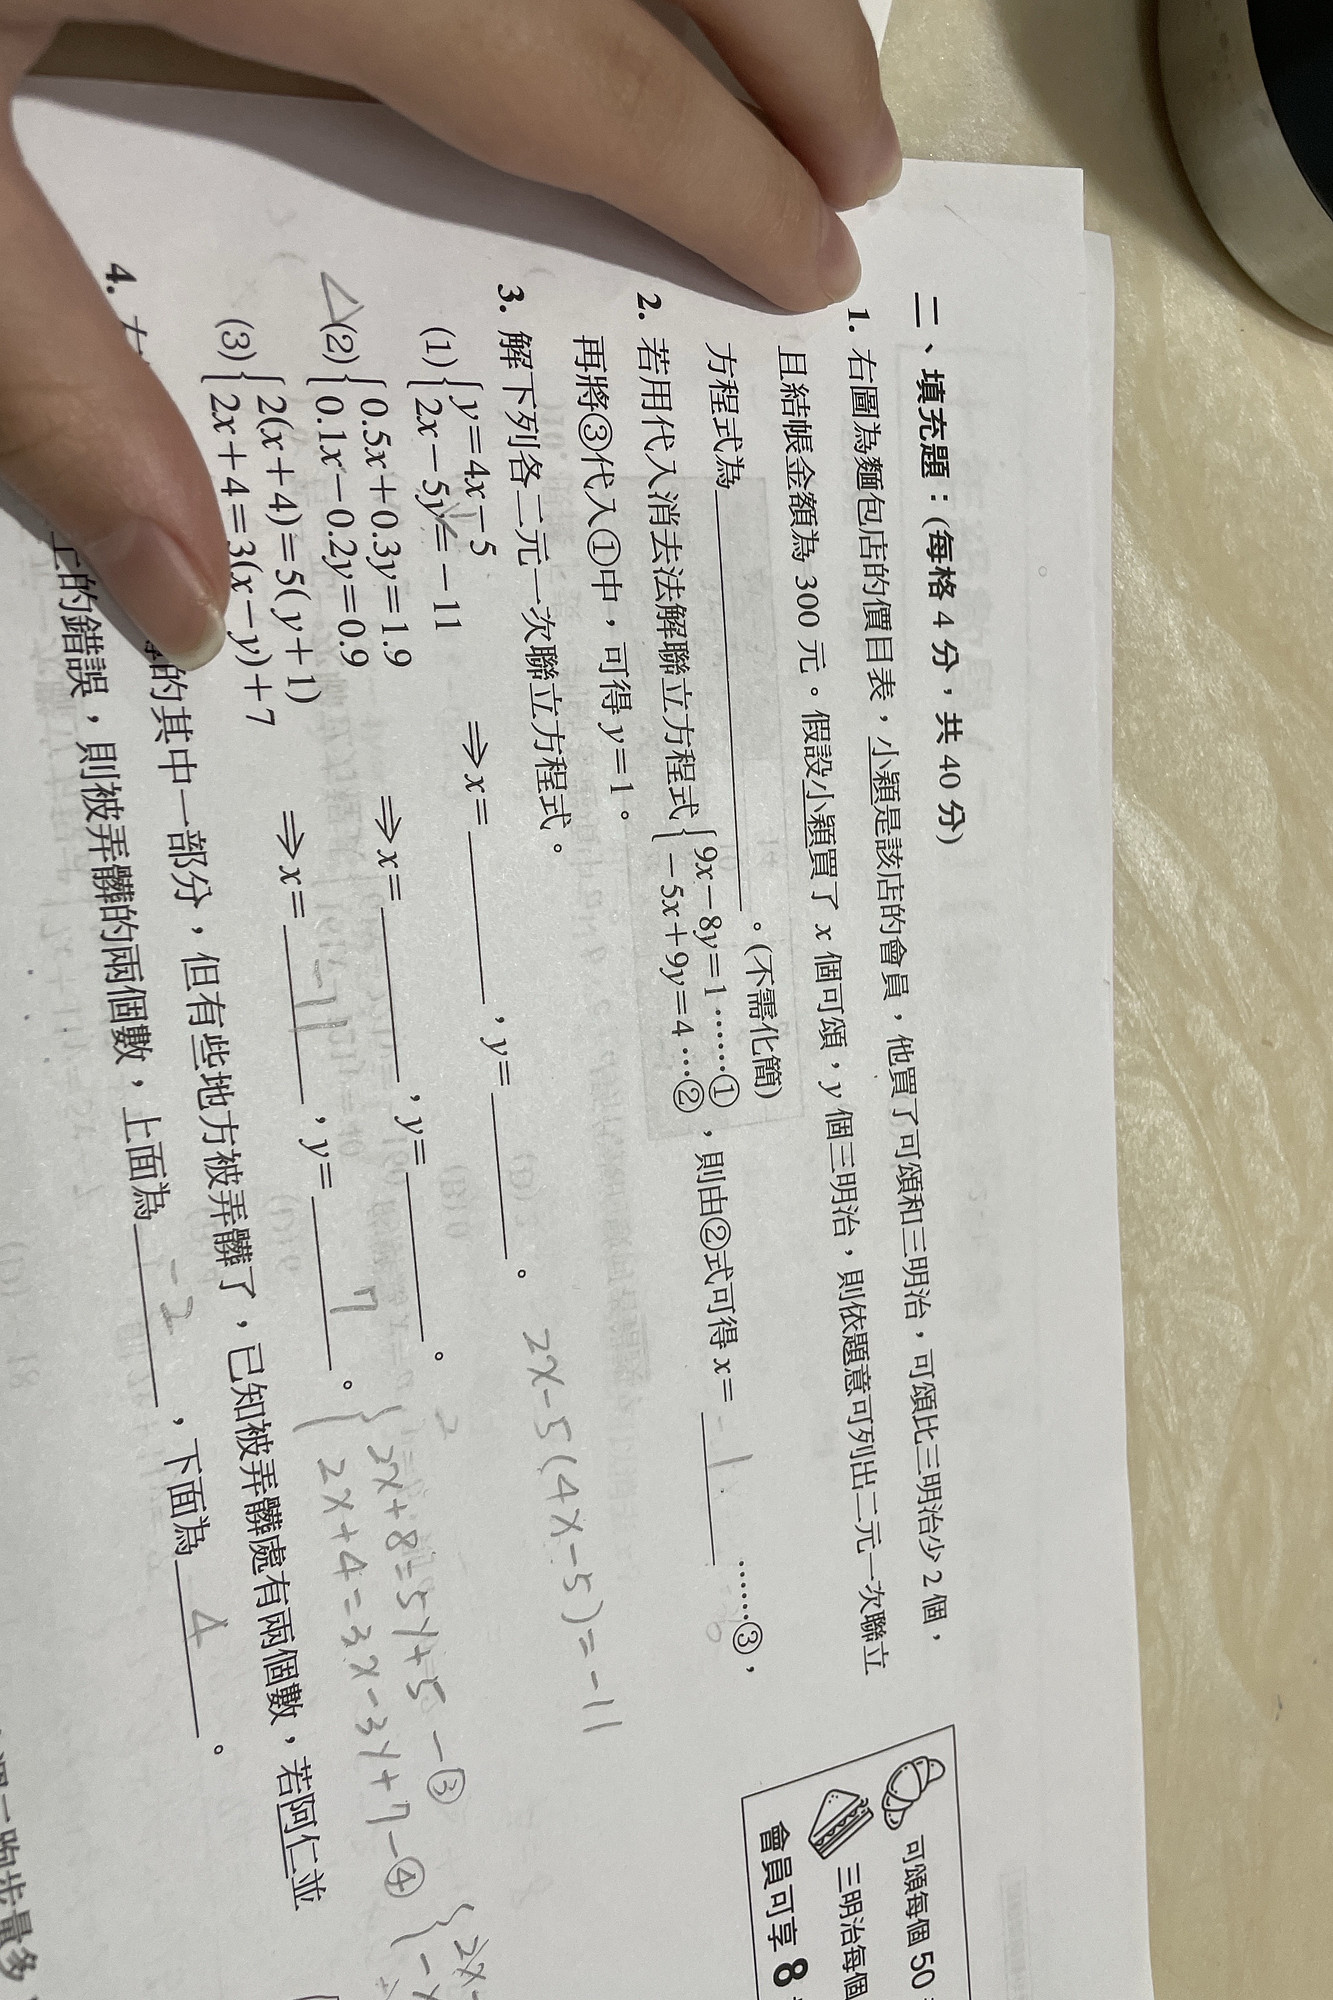 二、填充題：(每格 4 分，共 40 分)
1. 右圖為麵包店的價目表，小穎是該店的會員，他買了可頌和三明治，可頌比三明治少 2 個，
且結帳金額為 300 元。假設小穎買了 x 個可頌，y 個三明治，則依題意可列出二元一次聯立
方程式為＿＿＿＿。(不需化簡)
可頌每個 50
三明治每個
會員可享 8
2. 若用代入消去法解聯立方程式{9x－8y＝1……①
－5x＋9y＝4…②，則由②式可得 x＝ -1 ……③，
再將③代入①中，可得 y＝1。
3. 解下列各二元一次聯立方程式。
(1){y＝4x－5
2x－5y＝－11 ⇒ x＝＿＿，y＝＿＿。
2x-5(4x-5)=-11
(2){0.5x＋0.3y＝1.9
0.1x－0.2y＝0.9 ⇒ x＝＿＿，y＝＿＿。
(3){2(x＋4)＝5(y＋1)
2x＋4＝3(x－y)＋7 ⇒ x＝＿＿，y＝＿＿。
7
{2x+8=5y+5 -③
2x+4=3x-3y+7-④
4.
的其中一部分，但有些地方被弄髒了，已知被弄髒處有兩個數，若阿仁並
上的錯誤，則被弄髒的兩個數，上面為 -2，下面為 4。